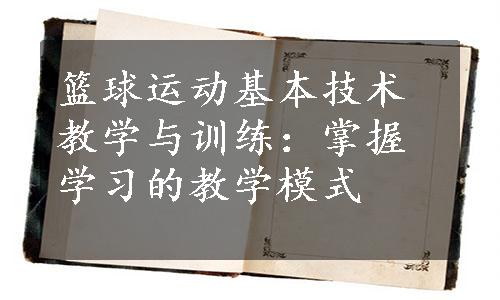 篮球运动基本技术
教学与训练：掌握
学习的教学模式